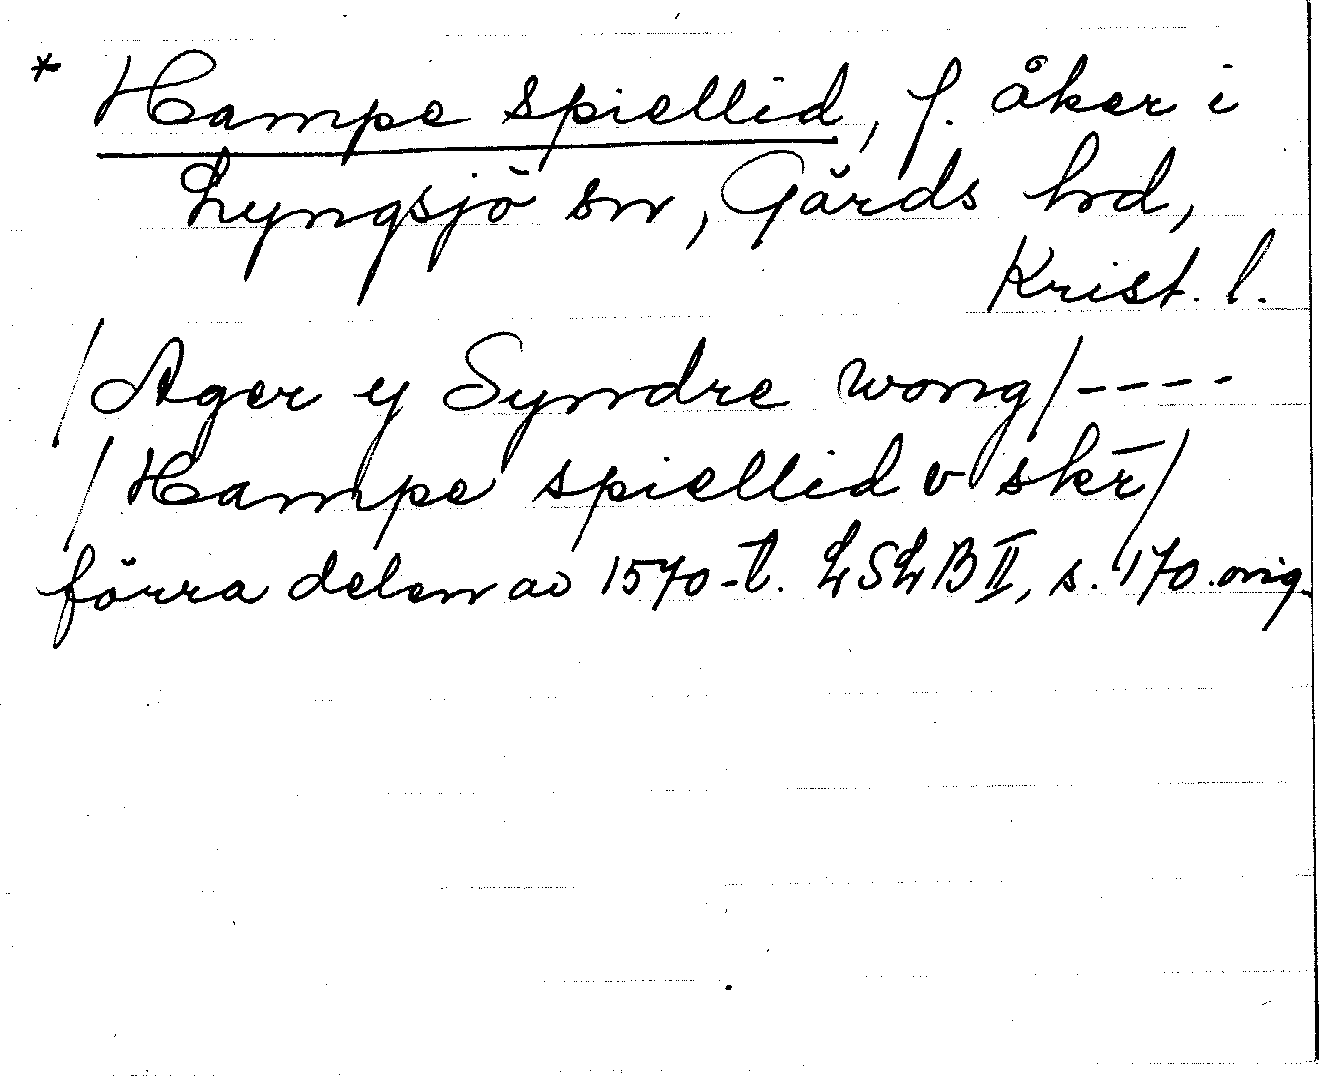 * Hampe spiellid, f. åker i
Lyngsjö sn, Gärds hrd,
Krist. l.
/Ager y Syndre wong/----
/Hampe spiellid v skr̄/
förra delen av 1570-t. LSLB II, s. 170. orig.